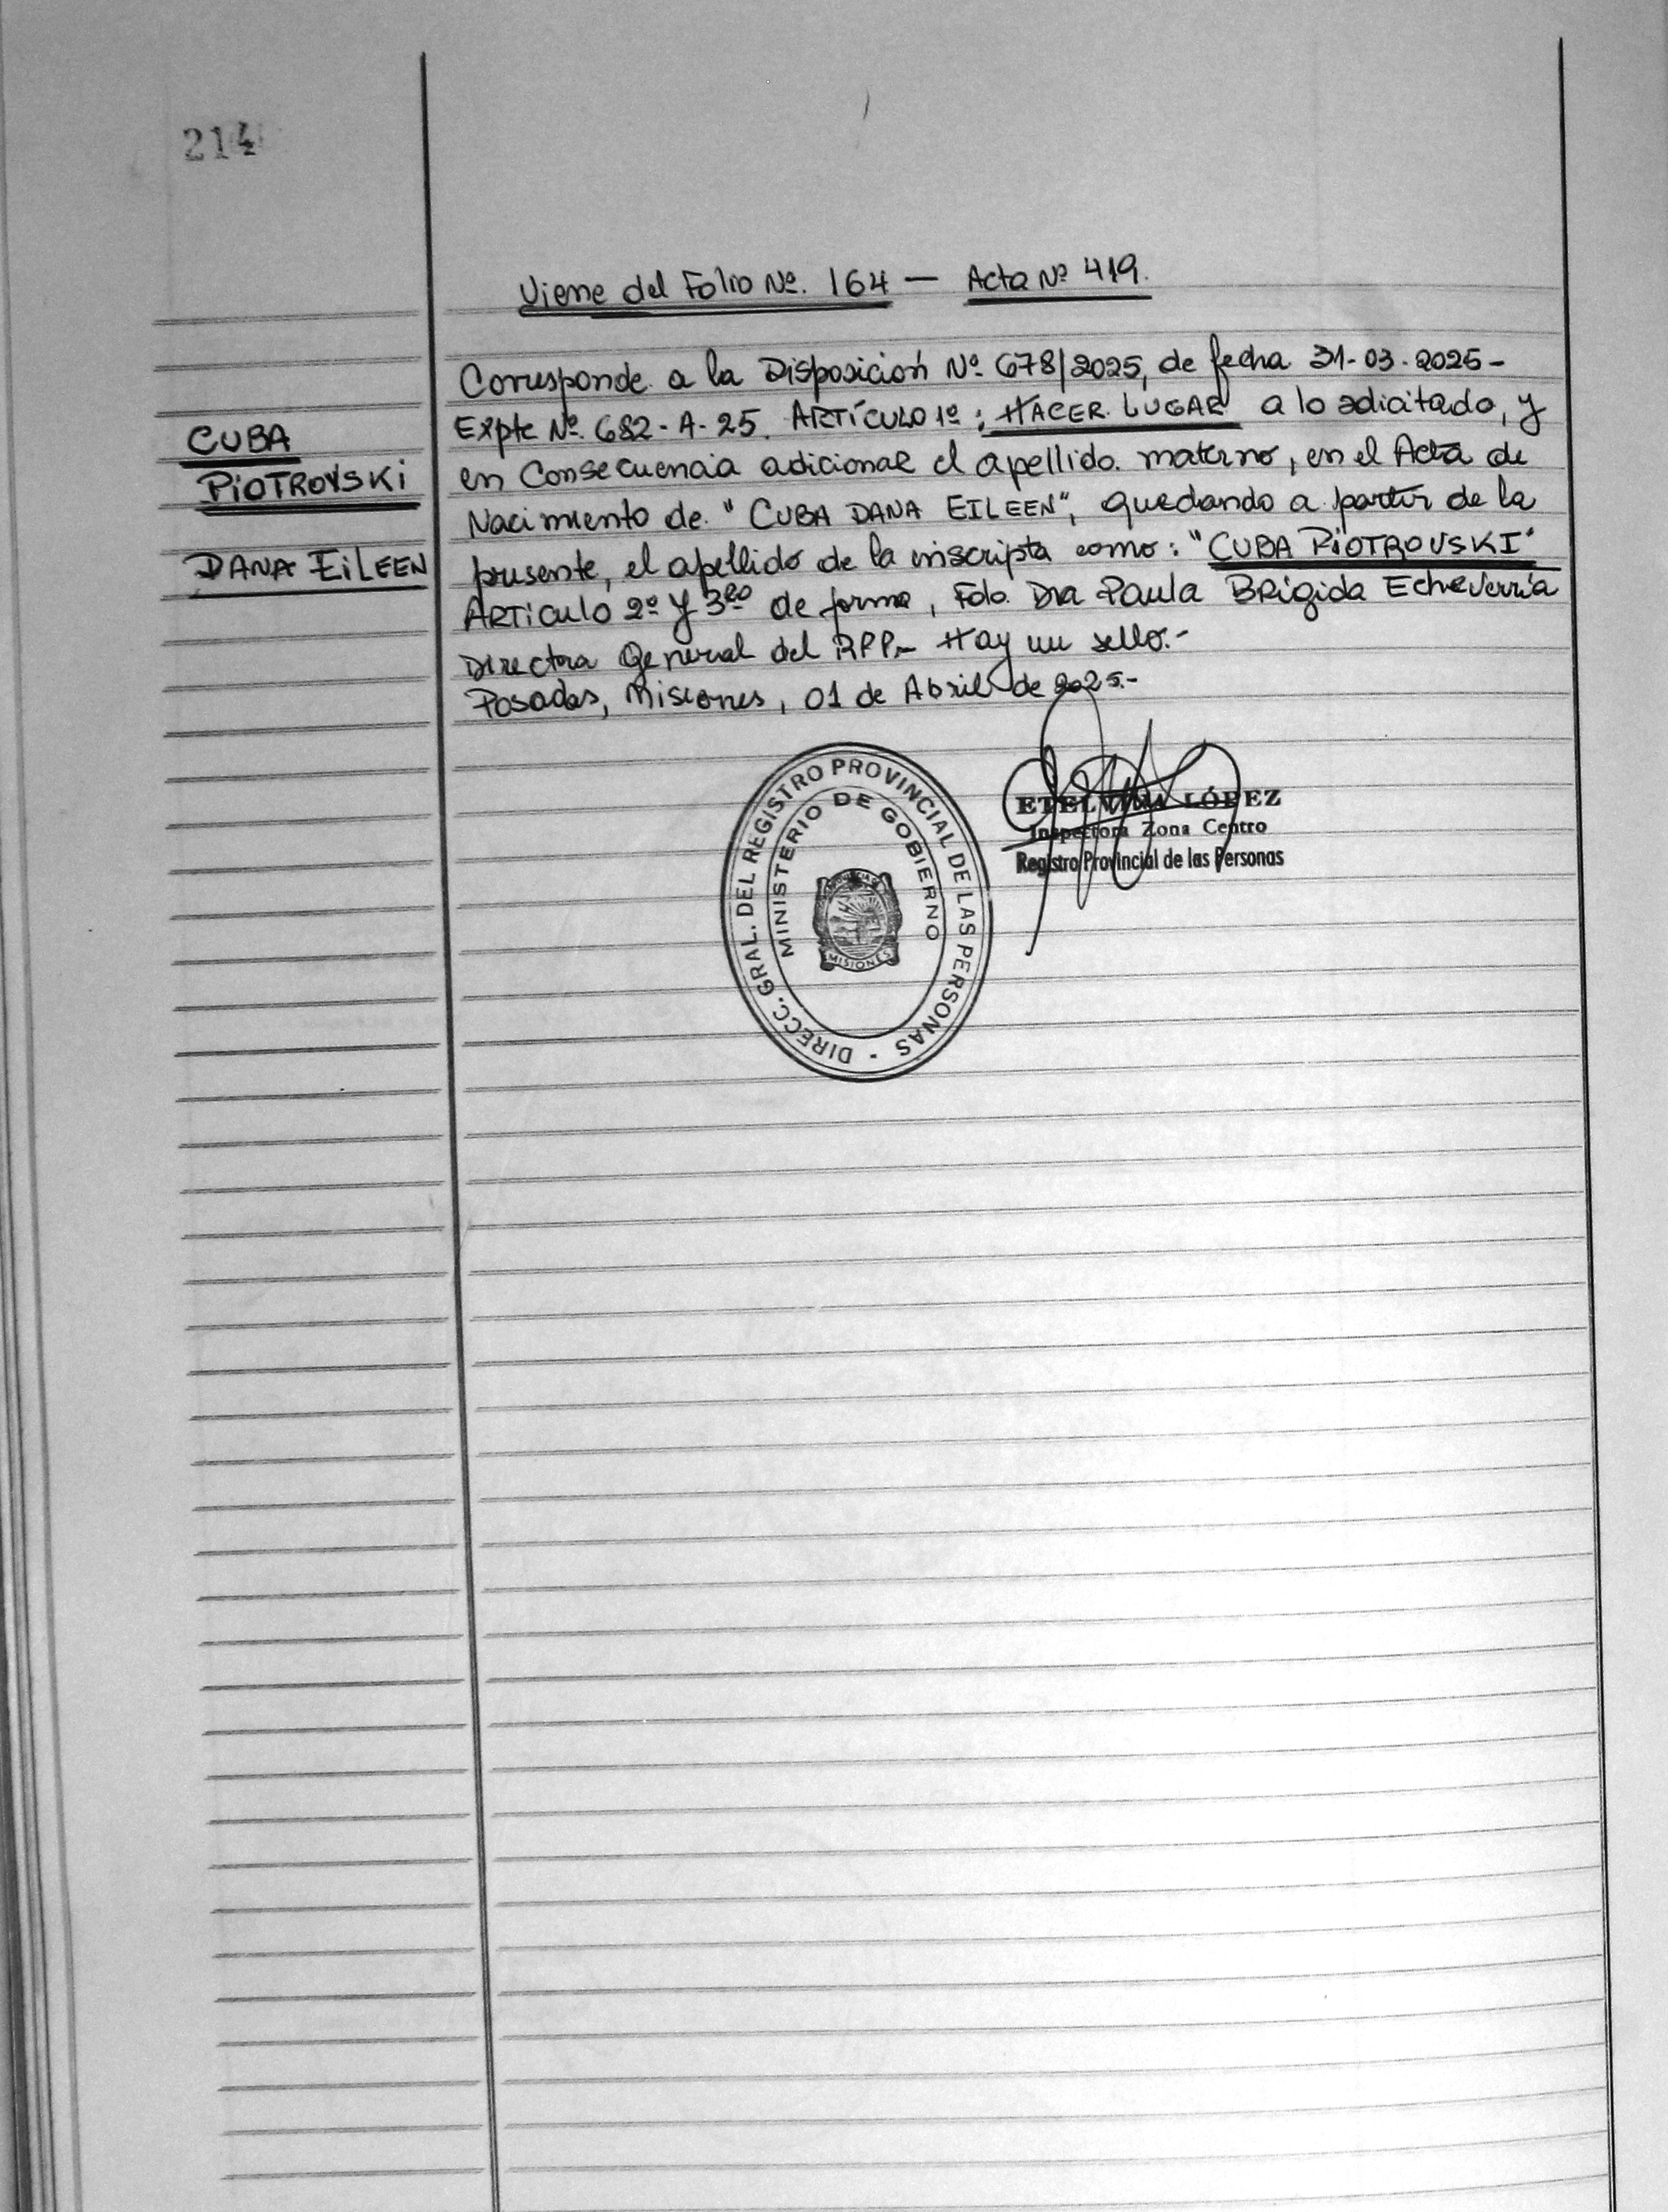 214
Viene del Folio Nº. 164 — Acta Nº 419.
CUBA
PIOTROVSKI
DANA EILEEN
Corresponde a la Disposición Nº 678/2025, de fecha 31-03-2025-
Expte Nº. 682-A-25. ARTÍCULO 1º: HACER LUGAR a lo solicitado, y
en Consecuencia adicionar el apellido materno, en el Acta de
Nacimiento de "CUBA DANA EILEEN", quedando a partir de la
presente, el apellido de la inscripta como: "CUBA PIOTROVSKI"
ARTICULO 2º Y 3ro de forma, Fdo. Dra Paula Brigida Echeverría
Directora General del RPP.- Hay un sello.-
Posadas, Misiones, 01 de Abril de 2025.-
DIRECC. GRAL. DEL REGISTRO PROVINCIAL DE LAS PERSONAS -
MINISTERIO DE GOBIERNO
MISIONES
ETELVINA LÓPEZ
Inspectora Zona Centro
Registro Provincial de las Personas